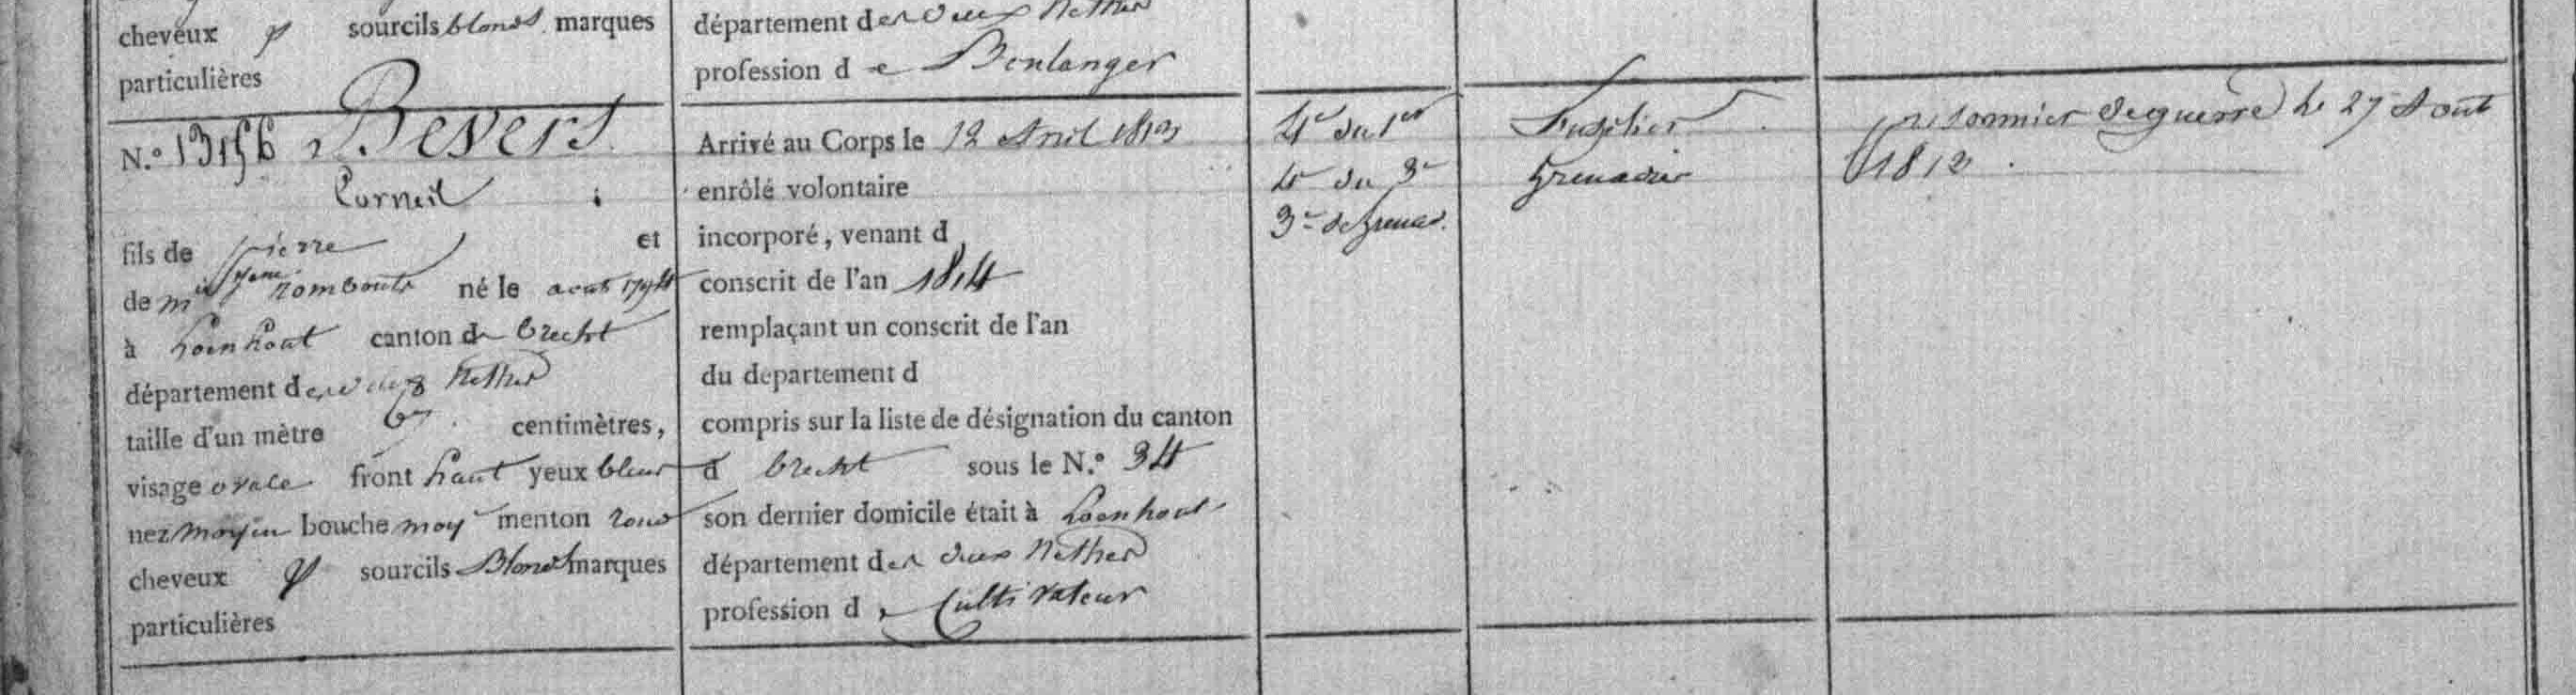 cheveux sourcils blonds marques
particulières
département des deux Nethes
profession de Boulanger
N.º 13156 Bevers
Corneil
fils de pierre et
de mie Jeanne rombouts né le aout 1794
à Loenhout canton de brecht
département des deux Nethes
taille d'un mètre 67 centimètres,
visage ovale front haut yeux bleus
nez moyen bouche moy menton rond
cheveux sourcils Blonds marques
particulières
Arrivé au Corps le 12 Avril 1813
enrôlé volontaire
incorporé, venant d
conscrit de l'an 1814
remplaçant un conscrit de l'an
du département d
compris sur la liste de désignation du canton
d brecht sous le N.º 34
son dernier domicile était à Loenhout
département des deux Nethes
profession de Cultivateur
4e du 1er
4e du 3e
3e de Grenad.
Fusilier
Grenadier
prisonnier de guerre le 27 Aout
1813.